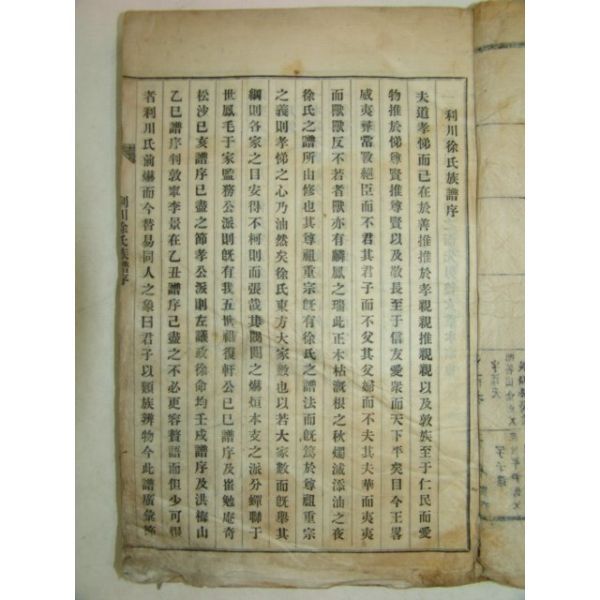 利川徐氏族譜序
夫道孝悌而已在於善推推於孝親親推親親以及敦族至于仁民而愛
物推於悌尊賢推尊賢以及敬長至于信友愛衆而天下平矣目今王畧
威夷彛常斁絕臣而不君其君子而不父其父婦而不夫其夫華而夷夷
而獸獸反不若者獸亦有麟鳳之瑞此正木枯漑根之秋燭滅添油之夜
徐氏之譜所由修也其尊祖重宗旣有徐氏之譜法而旣篤於尊祖重宗
之義則孝悌之心乃油然矣徐氏東方大家數也以若大家數而旣舉其
綱則各家之目安得不柯則而張哉其閥閱之爀烜本支之派分蟬聯于
世鳳毛于家監務公派則旣有我五世祖復軒公己巳譜序及崔勉庵奇
松沙己亥譜序已盡之節孝公派則左議政徐命均壬戌譜序及洪梅山
乙巳譜序判敦寧李景在乙丑譜序已盡之不必更容贅語而但少可恨
者利川氏前爀而今替易同人之象曰君子以類族辨物今此譜廣彙
利川徐氏族譜序